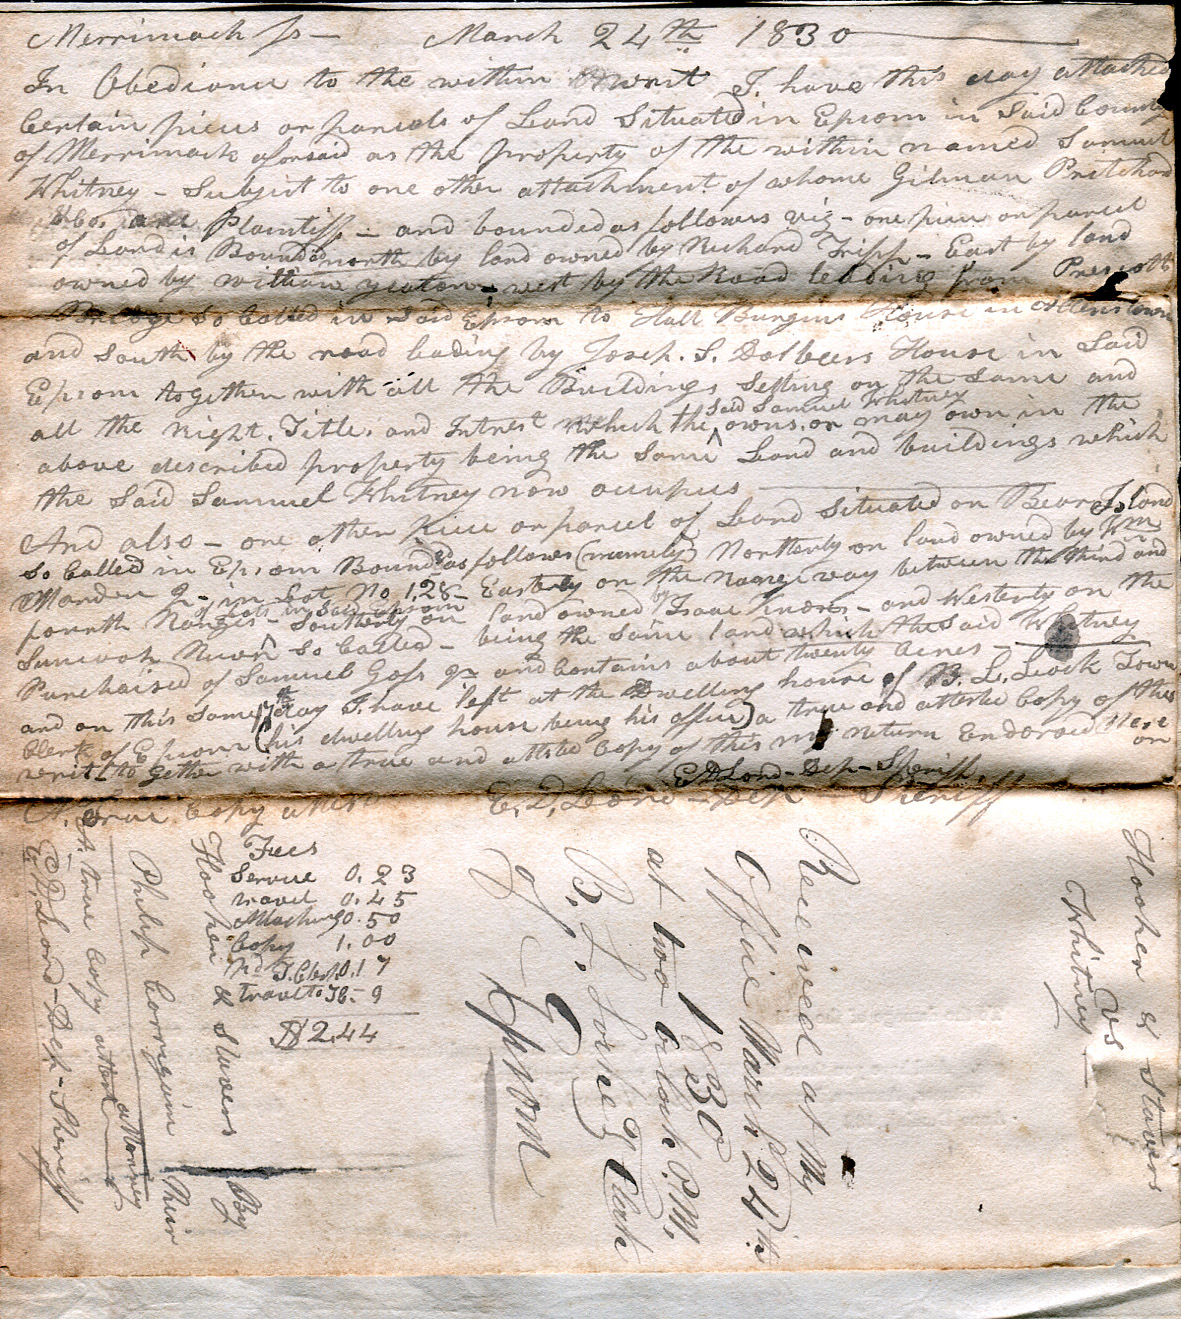 Merrimack ss — March 24th 1830
In Obediance to the within writ I have this day attached
Certain pieces or parcels of Land Situated in Epsom in Said County
of Merrimack aforsaid as the property of the within named Samuel
Whitney - Subject to one other attachment of whome Gilman Pritchard
are Plaintiff - and bounded as followes viz - one piece or parcel
of Land is Bounded north by land owned by Richard Tripp - East by land
owned by william yeaton - west by the Road leading from Prescotts
Bridge So Called in Said Epsom to Hall Burgins House in Allenstown
and South by the road leading by Joseph. S. Dolbeers House in Said
Epsom together with all the Buildings Setting on the Same and
all the right, Title, and Intrest which the Said Samuel Whitney owns, or may own in the
above described property being the Same Land and buildings which
the Said Samuel Whitney now occupies
And also - one other piece or parcel of Land Situated on Bear Island
So Called in Epsom Bounded as follows (namely) Northerly on land owned by Wm
Marden 2- in Lot No 128 - Easterly on the range way between the third and
fourth Ranges of Lots in Said Epsom - Southerly on land owned by Isaac - and Westerly on the
Suncook River So Called - being the Same land which the Said Whitney
Purchaised of Samuel Goss and Contains about twenty Acres -
and on this Same 24th day I have left at the Dwelling house of B. L. Lock Town
Clerk of Epsom (his dwelling house being his office) a true and attested Copy of this
writ together with a true and attested Copy of this my return Endorsed there
on
E D Lord - Dep - Sheriff
A. true Copy attest E. D. Lord - Dep Sheriff
Fees
Service 0.23
travel 0.45
Attaching 0.50
Copy 1.00
Pd T. Clerk 0.17
travel to 9
$2.44
Hooker & Stavers By
Philip Corrigain their
attorney
A. true Copy attest
E D Lord - Dep - Sheriff
Received at My
Office March 24th
1830
at two oclock P.M.
B. L. Locke T Clerk
of Epsom
Hooker & Stavers
vs
Whitney